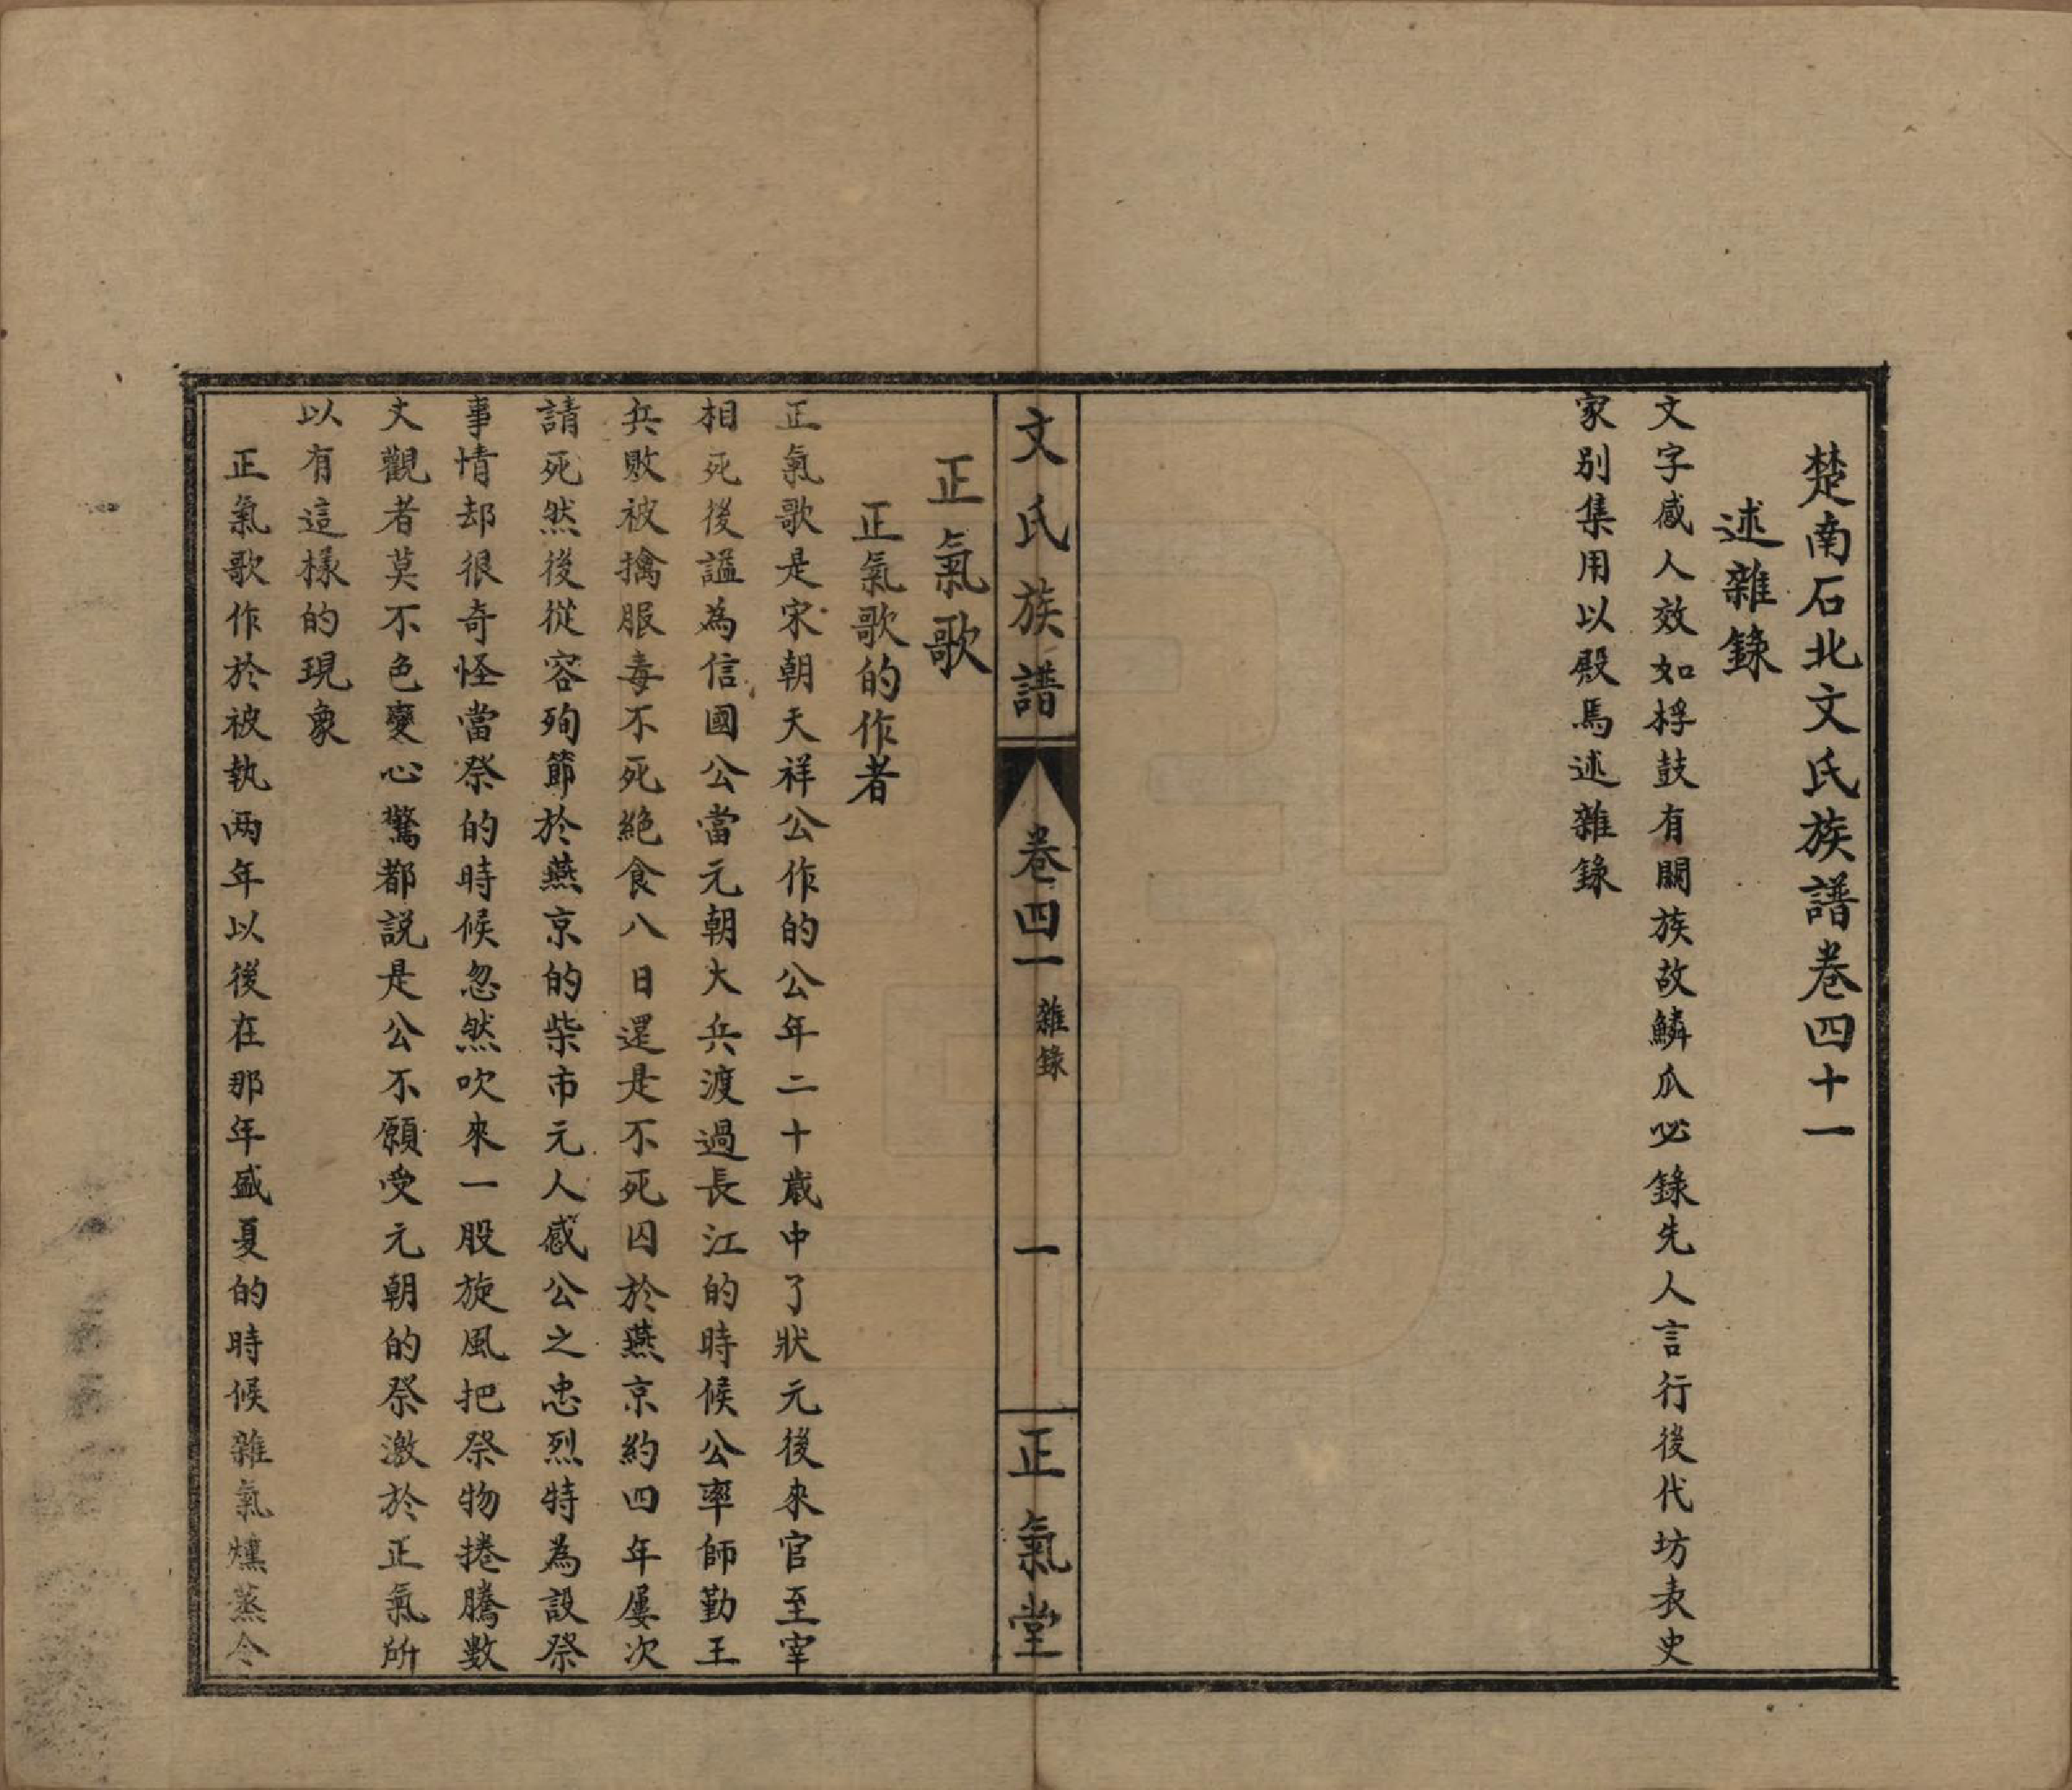 楚南石北文氏族譜卷四十一
述雜錄
文字感人效如桴鼓有關族故鱗爪必錄先人言行後代坊表史
家別集用以殿焉述雜錄
文氏族譜
卷四一
雜錄
一
正氣堂
正氣歌
正氣歌的作者
正氣歌是宋朝天祥公作的公年二十歲中了狀元後來官至宰
相死後諡為信國公當元朝大兵渡過長江的時候公率師勤王
兵敗被擒服毒不死絕食八日還是不死囚於燕京約四年屢次
請死然後從容殉節於燕京的柴市元人感公之忠烈特為設祭
事情却很奇怪當祭的時候忽然吹來一股旋風把祭物捲騰數
丈觀者莫不色變心驚都說是公不願受元朝的祭激於正氣所
以有這樣的現象
正氣歌作於被執两年以後在那年盛夏的時候雜氣燻蒸令